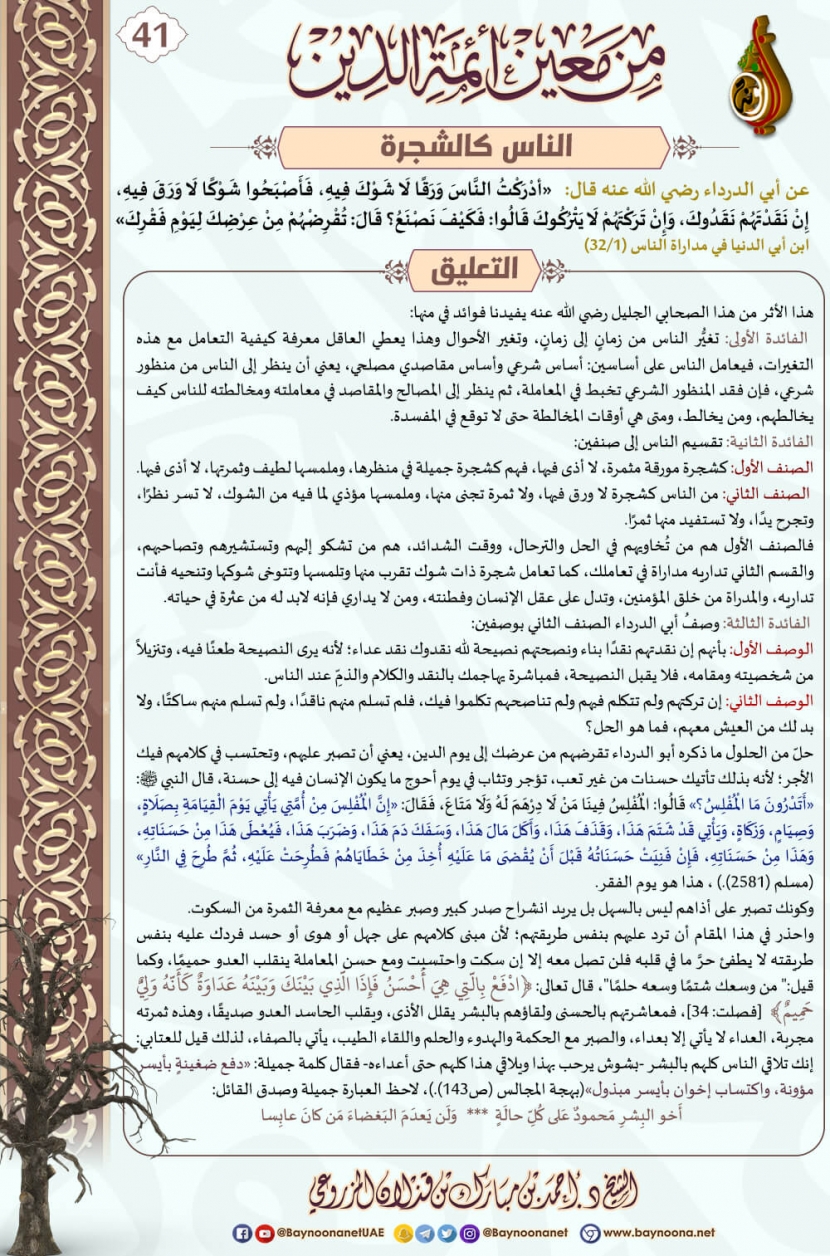 41
من معين أئمة الدين
الناس كالشجرة
عن أبي الدرداء رضي الله عنه قال: «أدْرَكْتُ النَّاسَ وَرَقًا لَا شَوْكَ فِيهِ، فَأَصْبَحُوا شَوْكًا لَا وَرَقَ فِيهِ،
إِنْ نَقَدْتَهُمْ نَقَدُوكَ، وَإِنْ تَرَكْتَهُمْ لَا يَتْرُكُوكَ قَالُوا: فَكَيْفَ نَصْنَعُ؟ قَالَ: تُقْرِضُهُمْ مِنْ عِرْضِكَ لِيَوْمِ فَقْرِكَ»
ابن أبي الدنيا في مداراة الناس (32/1)
التعليق
هذا الأثر من هذا الصحابي الجليل رضي الله عنه يفيدنا فوائد في منها:
الفائدة الأولى: تغيُّر الناس من زمانٍ إلى زمانٍ، وتغير الأحوال وهذا يعطي العاقل معرفة كيفية التعامل مع هذه
التغيرات، فيعامل الناس على أساسين: أساس شرعي وأساس مقاصدي مصلحي، يعني أن ينظر إلى الناس من منظور
شرعي، فإن فقد المنظور الشرعي تخبط في المعاملة، ثم ينظر إلى المصالح والمقاصد في معاملته ومخالطته للناس كيف
يخالطهم، ومن يخالط، ومتى هي أوقات المخالطة حتى لا توقع في المفسدة.
الفائدة الثانية: تقسيم الناس إلى صنفين:
الصنف الأول: كشجرة مورقة مثمرة، لا أذى فيها، فهم كشجرة جميلة في منظرها، وملمسها لطيف وثمرتها، لا أذى فيها.
الصنف الثاني: من الناس كشجرة لا ورق فيها، ولا ثمرة تجنى منها، وملمسها مؤذي لما فيه من الشوك، لا تسر نظرًا،
وتجرح يدًا، ولا تستفيد منها ثمرًا.
فالصنف الأول هم من تُخاويهم في الحل والترحال، ووقت الشدائد، هم من تشكو إليهم وتستشيرهم وتصاحبهم،
والقسم الثاني تداريه مداراة في تعاملك، كما تعامل شجرة ذات شوك تقرب منها وتلمسها وتتوخى شوكها وتنحيه فأنت
تداريه، والمدراة من خلق المؤمنين، وتدل على عقل الإنسان وفطنته، ومن لا يداري فإنه لابد له من عثرة في حياته.
الفائدة الثالثة: وصفُ أبي الدرداء الصنف الثاني بوصفين:
الوصف الأول: بأنهم إن نقدتهم نقدًا بناء ونصحتهم نصيحة لله نقدوك نقد عداء؛ لأنه يرى النصيحة طعنًا فيه، وتنزيلاً
من شخصيته ومقامه، فلا يقبل النصيحة، فمباشرة يهاجمك بالنقد والكلام والذمّ عند الناس.
الوصف الثاني: إن تركتهم ولم تتكلم فيهم ولم تناصحهم تكلموا فيك، فلم تسلم منهم ناقدًا، ولم تسلم منهم ساكتًا، ولا
بد لك من العيش معهم، فما هو الحل؟
حلّ من الحلول ما ذكره أبو الدرداء تقرضهم من عرضك إلى يوم الدين، يعني أن تصبر عليهم، وتحتسب في كلامهم فيك
الأجر؛ لأنه بذلك تأتيك حسنات من غير تعب، تؤجر وتثاب في يوم أحوج ما يكون الإنسان فيه إلى حسنة، قال النبي ﷺ:
«أَتَدْرُونَ مَا الْمُفْلِسُ؟» قَالُوا: الْمُفْلِسُ فِينَا مَنْ لَا دِرْهَمَ لَهُ وَلَا مَتَاعَ، فَقَالَ: «إِنَّ الْمُفْلِسَ مِنْ أُمَّتِي يَأْتِي يَوْمَ الْقِيَامَةِ بِصَلَاةٍ،
وَصِيَامٍ، وَزَكَاةٍ، وَيَأْتِي قَدْ شَتَمَ هَذَا، وَقَذَفَ هَذَا، وَأَكَلَ مَالَ هَذَا، وَسَفَكَ دَمَ هَذَا، وَضَرَبَ هَذَا، فَيُعْطَى هَذَا مِنْ حَسَنَاتِهِ،
وَهَذَا مِنْ حَسَنَاتِهِ، فَإِنْ فَنِيَتْ حَسَنَاتُهُ قَبْلَ أَنْ يُقْضَى مَا عَلَيْهِ أُخِذَ مِنْ خَطَايَاهُمْ فَطُرِحَتْ عَلَيْهِ، ثُمَّ طُرِحَ فِي النَّارِ»
(مسلم (2581).) ، هذا هو يوم الفقر.
وكونك تصبر على أذاهم ليس بالسهل بل يريد انشراح صدر كبير وصبر عظيم مع معرفة الثمرة من السكوت.
واحذر في هذا المقام أن ترد عليهم بنفس طريقتهم؛ لأن مبنى كلامهم على جهل أو هوى أو حسد فردك عليه بنفس
طريقته لا يطفئ حرَّ ما في قلبه فلن تصل معه إلا إن سكت واحتسبت ومع حسن المعاملة ينقلب العدو حميمًا، وكما
قيل:" من وسعك شتمًا وسعه حلمًا"، قال تعالى: ﴿ادْفَعْ بِالَّتِي هِيَ أَحْسَنُ فَإِذَا الَّذِي بَيْنَكَ وَبَيْنَهُ عَدَاوَةٌ كَأَنَّهُ وَلِيٌّ
حَمِيمٌ﴾ [فصلت: 34]، فمعاشرتهم بالحسنى ولقاؤهم بالبشر يقلل الأذى، ويقلب الحاسد العدو صديقًا، وهذه ثمرته
مجربة، العداء لا يأتي إلا بعداء، والصبر مع الحكمة والهدوء والحلم واللقاء الطيب، يأتي بالصفاء، لذلك قيل للعتابي:
إنك تلاقي الناس كلهم بالبشر -بشوش يرحب بهذا ويلاقي هذا كلهم حتى أعداءه- فقال كلمة جميلة: «دفع ضغينةٍ بأيسر
مؤونة، واكتساب إخوان بأيسر مبذول»(بهجة المجالس (ص143).)، لاحظ العبارة جميلة وصدق القائل:
أَخو البِشرِ مَحمودٌ عَلى كُلِّ حالَةٍ *** وَلَن يَعدَمَ البَغضاءَ مَن كانَ عابِسا
الشيخ د. أحمد بن مبارك بن قذلان المزروعي
@BaynoonanetUAE @Baynoonanet www.baynoona.net